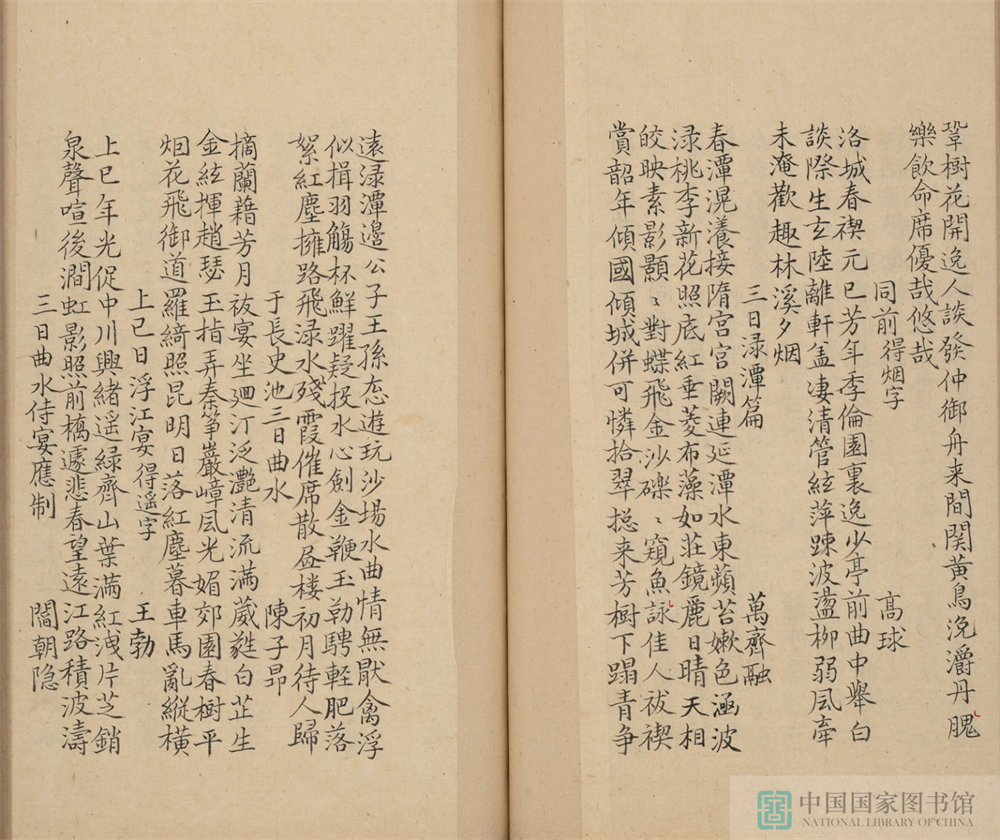 鞏樹花開逸人談發仲御舟来間関黄鳥浼灂丹腮
樂飲命席優哉悠哉
同前得烟字 高球
洛城春禊元巳芳年季倫園裏逸少亭前曲中舉白
談際生玄陸離軒盖凄清管絃萍踈波盪柳弱風牽
未淹歡趣林溪夕烟
三日渌潭篇 萬齊融
春潭滉瀁接隋宮宮闕連延潭水東蘋苔嫰色涵波
渌桃李新花照底紅垂菱布藻如莊鏡麗日晴天相
皎映素影顥〻對蝶飛金沙磔〻窺魚詠佳人祓禊
賞韶年傾國傾城併可憐拾翠摠来芳樹下蹋青争
遠渌潭邊公子王孫恣遊玩沙場水曲情無猒禽浮
似揖羽觴杯鮮躍疑投水心劍金鞭玉勒騁輕肥落
絮紅塵擁路飛渌水殘霞催席散昼楼初月待人歸
于長史池三日曲水 陳子昂
摘蘭藉芳月祓宴坐廻汀泛灧清流滿葳蕤白芷生
金絃揮趙瑟玉指弄秦筝巖嶂風光媚郊園春樹平
烟花飛御道羅綺照昆明日落紅塵暮車馬亂縱橫
上巳日浮江宴 得遥字 王勃
上巳年光促中川興緒遥緑齊山葉滿紅洩片芝銷
泉聲喧後澗虹影照前橋遽悲春望遠江路積波濤
三日曲水侍宴應制 閻朝隐
中国国家图书馆
NATIONAL LIBRARY OF CHINA